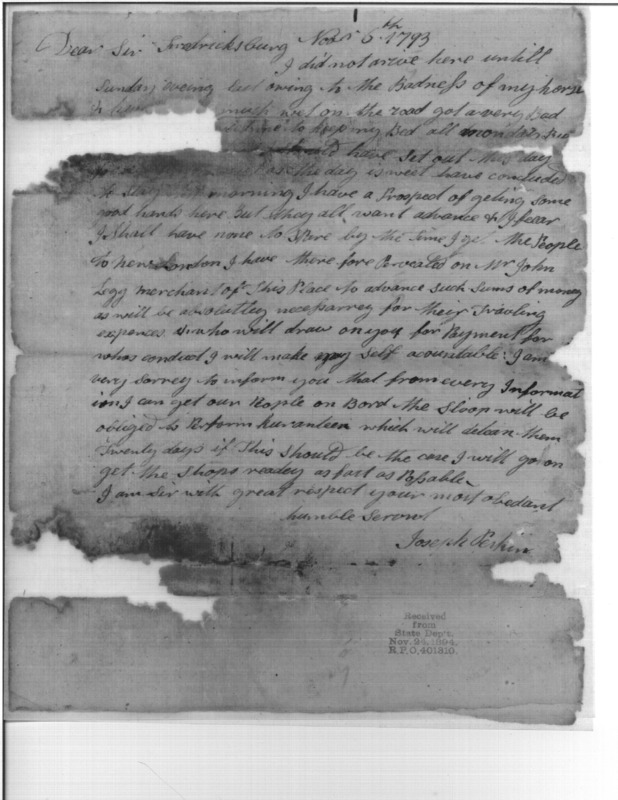 Dear Sir Fredricksburg Novr 6th 1793
I did not arive here untill
Sunday evening last owing to the Badness of my horse
much wet on the road got a very Bad
to keep my Bed all monday
should have Set out this day
as the day is wet have concluded
morning I have a Prospect of geting some
good hands here But they all want advance & I fear
I shall have none to Spare by the time I get the People
to New London I have there fore Prevealed on Mr John
Legg merchant of This Place to advance such Sums of money
as will be absolutley necessarrey for their Travling
expences & who will draw on you for Payment for
whos conduct I will make my Self acountable. I am
very Sorrey to inform you that from every Informat
ion I can get our People on Bord the Sloop will be
obliged to Perform kuranteen which will detain them
Twenty days if This should be the case I will go on
get the Shops readey as fast as Possable
I am Sir with great respect your most obedant
humble Servant
Joseph Perkin
Received
from
State Dep't.
Nov. 24, 1894.
R.P.O. 401810.